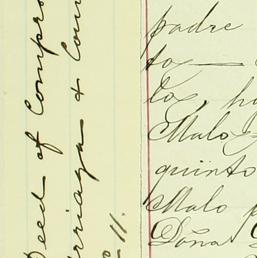 Deed of Compro
rriaga & Con
11.
padre
to—
los, ha
Malo
quinto
Malo p
Doña